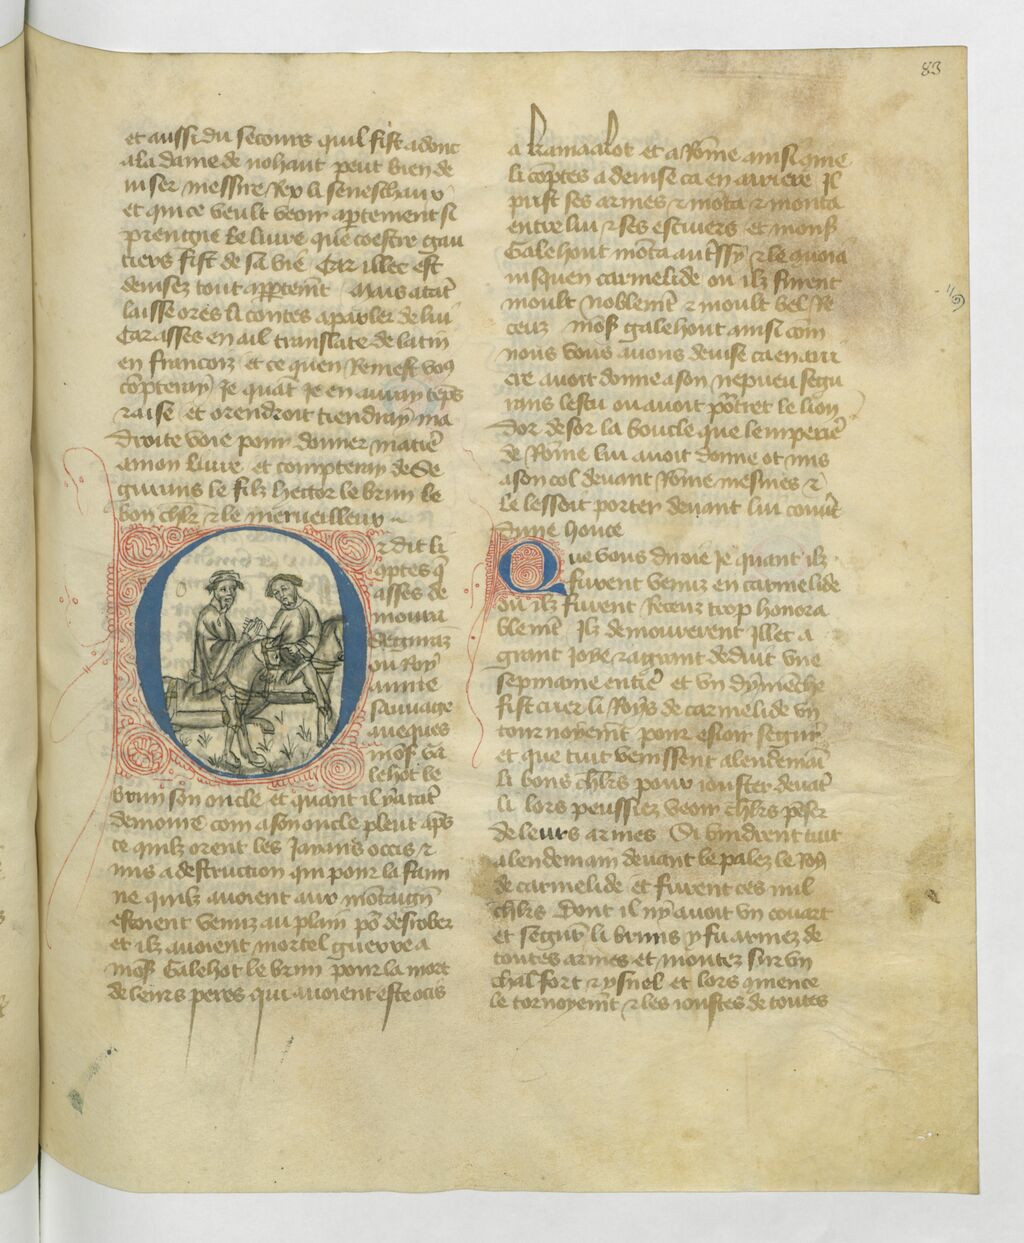 83
et aussi du secours quil fist adonc
ala dame de nohaut peut bien de
uiser messire Rex li seneschaux
et qui ce veult veoir aptement si
prengne le liure que coestre gau
tiers fist de sa vie Car illec est
deuisez tout appteint Mais atāt
laisse ores li contes aparler de lui
Car asses en ail translate de latin
en francoiz et ce quen Remest vo9
cōpteray Je quāt Je en auray tēps
raise et orendroit tiendray ma
droite voie pour donner matiē
amon liure et compteray de Se
gurans le filz hector le brun le
bon chlr & le merueilleux
Or dit li
cptes q̄
asses de
moura
Seguraz
ou Roy
aume
sauuage
auecques
mōs Ga
lehot le
brun son oncle et quant il y a tāt
demoure com a son oncle pleut aps
ce quilz orent les Jayans occis &
mis a destruction qui pour la fain
ne quilz auoient aux mōtaign
estoient venuz au plain po desrober
et ilz auoient mortel guerre a
mōs Galehot le brun pour la mort
de leurs peres qui auoient este ocis
a kamaalot et a Rōme ainsi que
li cōptes a deuise ca en arriere Jl
prist ses armes & mōta & monta
entre lui & ses escuiers et mons
Galehout mōta aussy & le quoia
iusquen carmelide ou ilz furent
moult noblemt & moult bel Re
ceuz mōs galehout ainsi com
nous vous auons deuise ca en arri
ere auoit donne a son nepueu segu
rans lescu ou auoit portret le lion
dor desor la boucle que lemperiē
de Rōme lui auoit donne et mis
a son col deuant Rōme mesmes &
le lessoit porter deuant lui couūt
dune houce
Que vous diroie Je quant ilz
furent venuz en carmelide
ou ilz furent Receuz trop honora
blemt Ilz demourerent Jllec a
grant Joye & a grant deduit vne
sepmaine entiē et vn dymēche
fist crier li Roys de carmelide vn
tournoyemt pour essoir segur
et que tuit venissent alendemai
li bons chlrs pour iouster deuāt
li lors peussiez veoir chlrs peser
de leurs armes Si vindrent tuit
alendemain deuant le palez le Roy
de carmelide et furent ces mil
chlrs Dont il ny auoit vn couart
et segur li bruns y fu armez de
toutes armes et montez sur vn
chal fort & ysnel et lors cmence
le tornoyemt & les ioustes de toutes